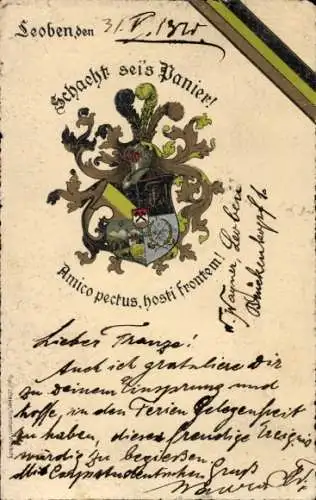 Leoben, den 31. V. 1920
Schacht sei's Panier!
Amico pectus, hosti frontem!
Wagner, Leoben
Brückenkopf
Lieber Franze!
Auch ich gratuliere Dir
zu Deinem Einsprung und
hoffe, in den Ferien Gelegenheit
zu haben, dieses freudige Ereignis
würdig zu begiessen.
Mit Corpsstudentischen Gruß